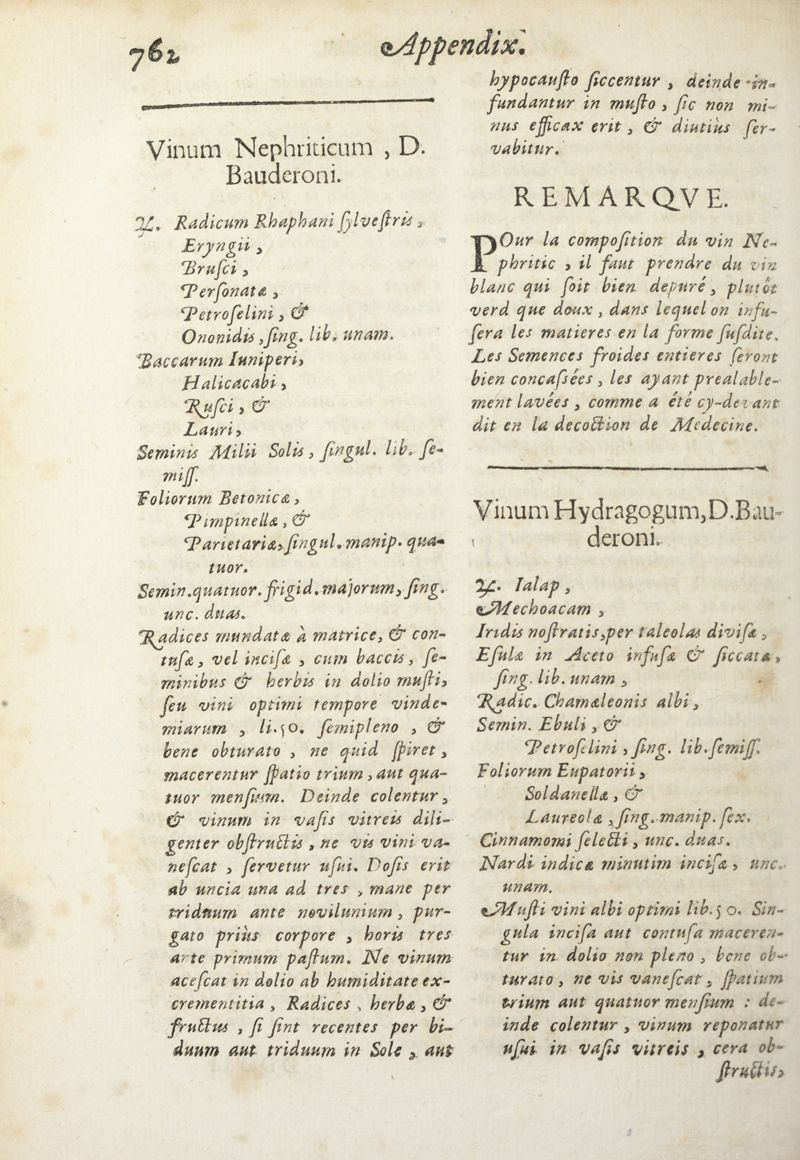 762
Appendix.
Vinum Nephriticum , D.
Bauderoni.
♃. Radicum Rhaphani ſylveſtris ,
Eryngii ,
Bruſci ,
Perſonatæ ,
Petroſelini , &
Ononidis , ſing. lib. unam.
Baccarum Iuniperi,
Halicacabi ,
Ruſci , &
Lauri ,
Seminis Milii Solis , ſingul. lib. ſe-
miſſ.
Foliorum Betonicæ ,
Pimpinellæ , &
Parietariæ, ſingul. manip. qua-
tuor.
Semin. quatuor. frigid. majorum, ſing.
unc. duas.
Radices mundatæ à matrice, & con-
tuſæ , vel inciſæ , cum baccis , ſe-
minibus & herbis in dolio muſti,
ſeu vini optimi tempore vinde-
miarum , li. 50. ſemipleno , &
bene obturato , ne quid ſpiret ,
macerentur ſpatio trium , aut qua-
tuor menſium. Deinde colentur ,
& vinum in vaſis vitreis dili-
genter obſtructis , ne vis vini va-
neſcat , ſervetur uſui. Doſis erit
ab uncia una ad tres , mane per
triduum ante novilunium , pur-
gato priùs corpore , horis tres
arte primum paſtum. Ne vinum
aceſcat in dolio ab humiditate ex-
crementitia , Radices , herbæ , &
fructus , ſi ſint recentes per bi-
duum aut triduum in Sole , aut
hypocauſto ſiccentur , deinde in-
fundantur in muſto , ſic non mi-
nus efficax erit , & diutiùs ſer-
vabitur.
REMARQVE.
POur la compoſition du vin Ne-
phritic , il faut prendre du vin
blanc qui ſoit bien depuré , plutôt
verd que doux , dans lequel on infu-
ſera les matieres en la forme ſuſdite.
Les Semences froides entieres ſeront
bien concaſsées , les ayant prealable-
ment lavées , comme a été cy-devant
dit en la decoction de Medecine.
Vinum Hydragogum, D. Bau-
deroni.
♃. Ialap ,
Mechoacam ,
Iridis noſtratis, per taleolas diviſæ ,
Eſulæ in Aceto infuſæ & ſiccatæ ,
ſing. lib. unam ,
Radic. Chamæleonis albi ,
Semin. Ebuli , &
Petroſelini , ſing. lib. ſemiſſ.
Foliorum Eupatorii ,
Soldanellæ , &
Laureolæ , ſing. manip. ſex.
Cinnamomi ſelecti , unc. duas.
Nardi indicæ minutim inciſæ , unc.
unam.
Muſti vini albi optimi lib. 50. Sin-
gula inciſa aut contuſa maceren-
tur in dolio non pleno , bene ob-
turato , ne vis vaneſcat , ſpatium
trium aut quatuor menſium : de-
inde colentur , vinum reponatur
uſui in vaſis vitreis , cera ob-
ſtructis,